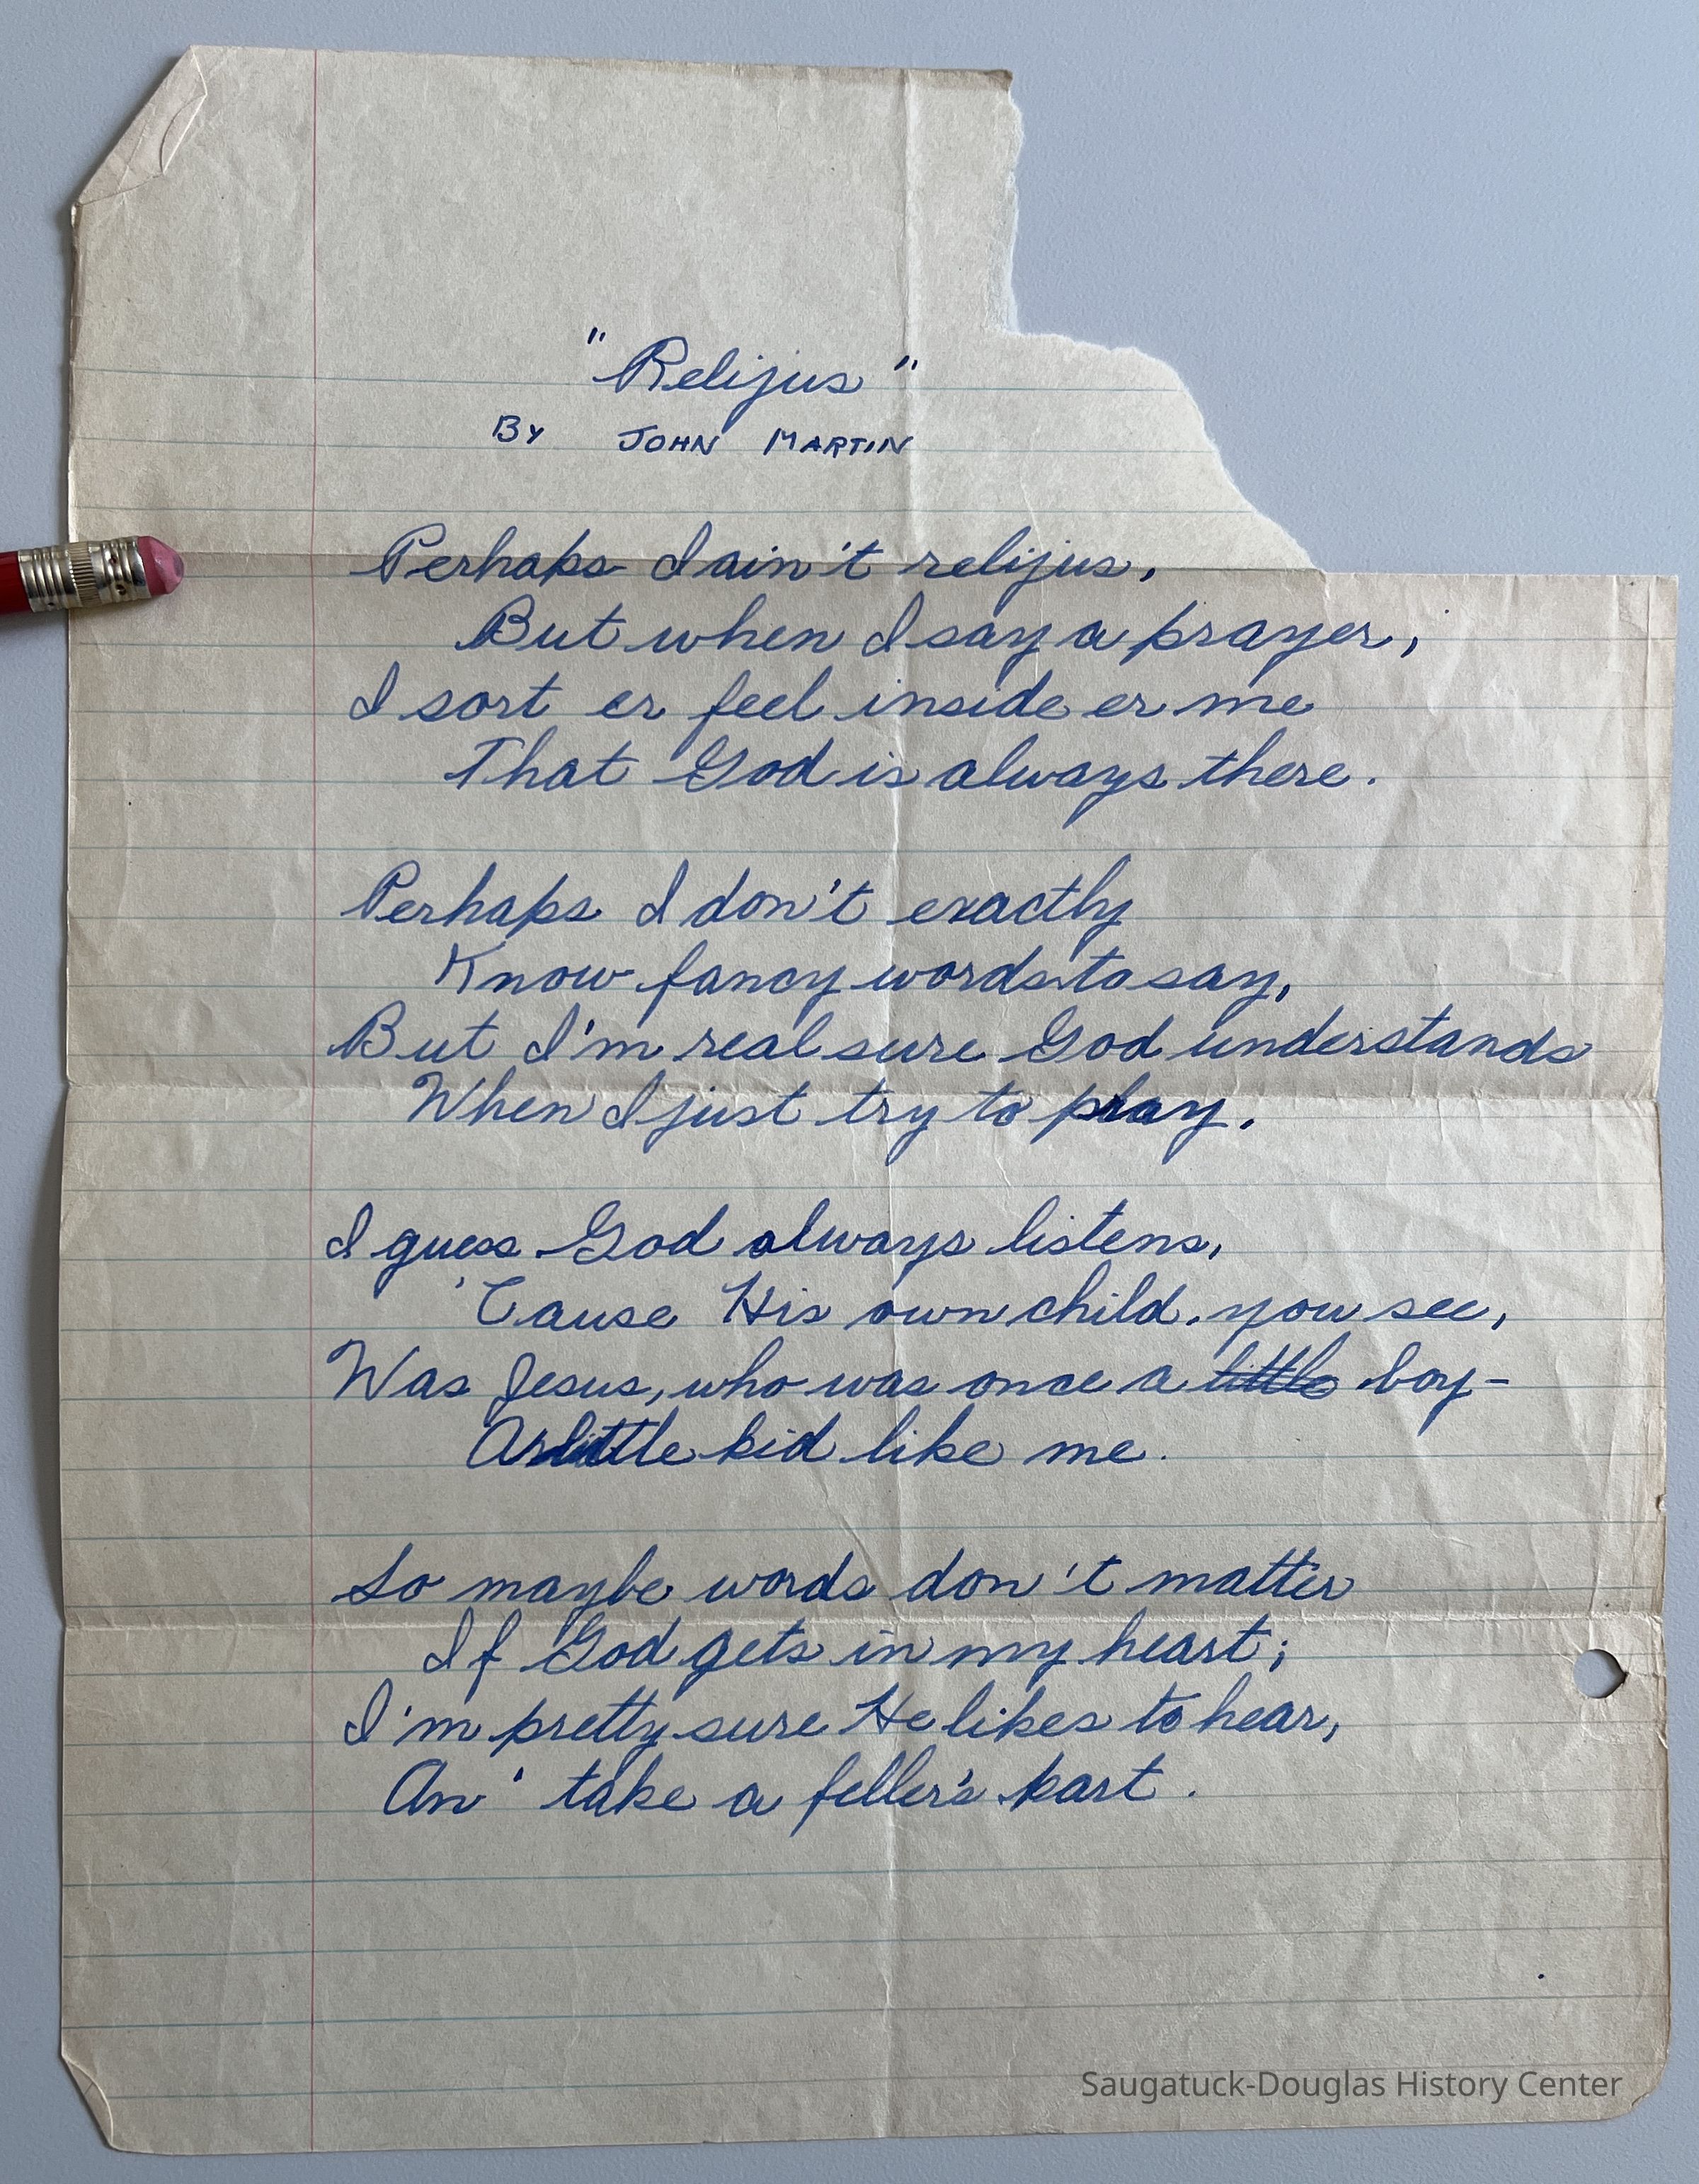 "Relijus"
BY JOHN MARTIN
Perhaps I ain't relijus,
But when I say a prayer,
I sort er feel inside er me
That God is always there.
Perhaps I don't exactly
Know fancy words to say,
But I'm real sure God understands
When I just try to play.
I guess God always listens,
'Cause His own child, you see,
Was Jesus, who was once a little boy-
A little kid like me.
So maybe words don't matter
If God gets in my heart;
I'm pretty sure He likes to hear,
An' take a feller's part.
Saugatuck-Douglas History Center